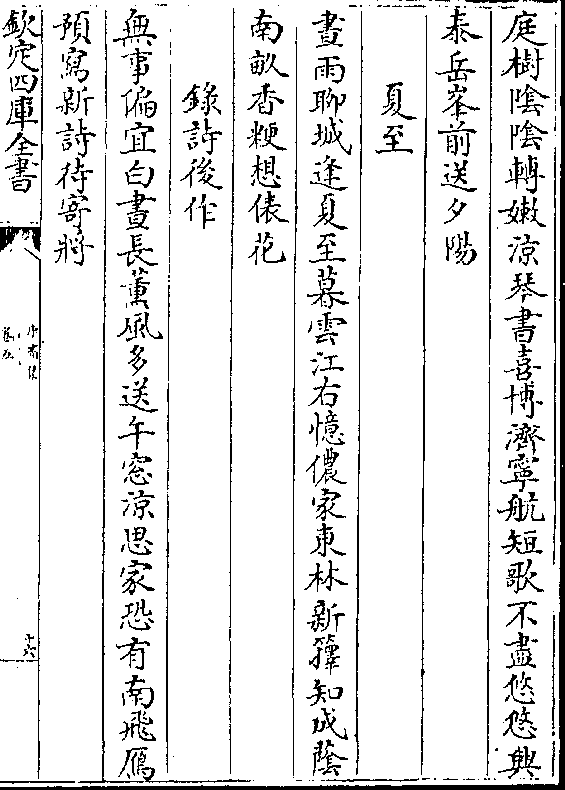 庭樹陰陰轉嫩涼琴書喜博濟寧航短歌不盡悠悠興
泰岳峯前送夕陽
夏至
晝雨聊城逢夏至暮雲江右憶儂家東林新籜知成蔭
南畝香粳想俵花
錄詩後作
無事偏宜白晝長薰風多送午窓涼思家恐有南飛鴈
預寫新詩待寄將
欽定四庫全書
卷五
十六